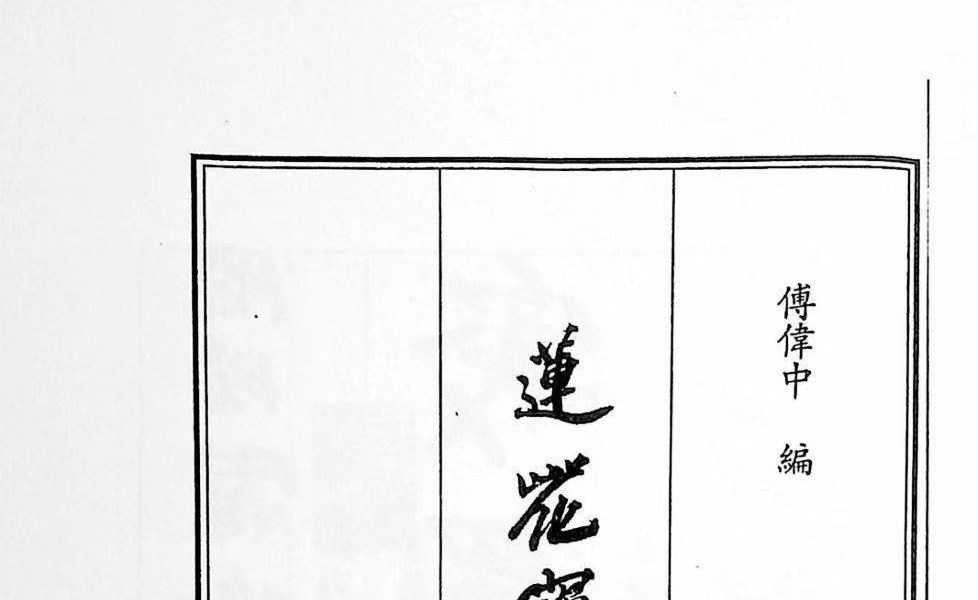 傅偉中 編
蓮花